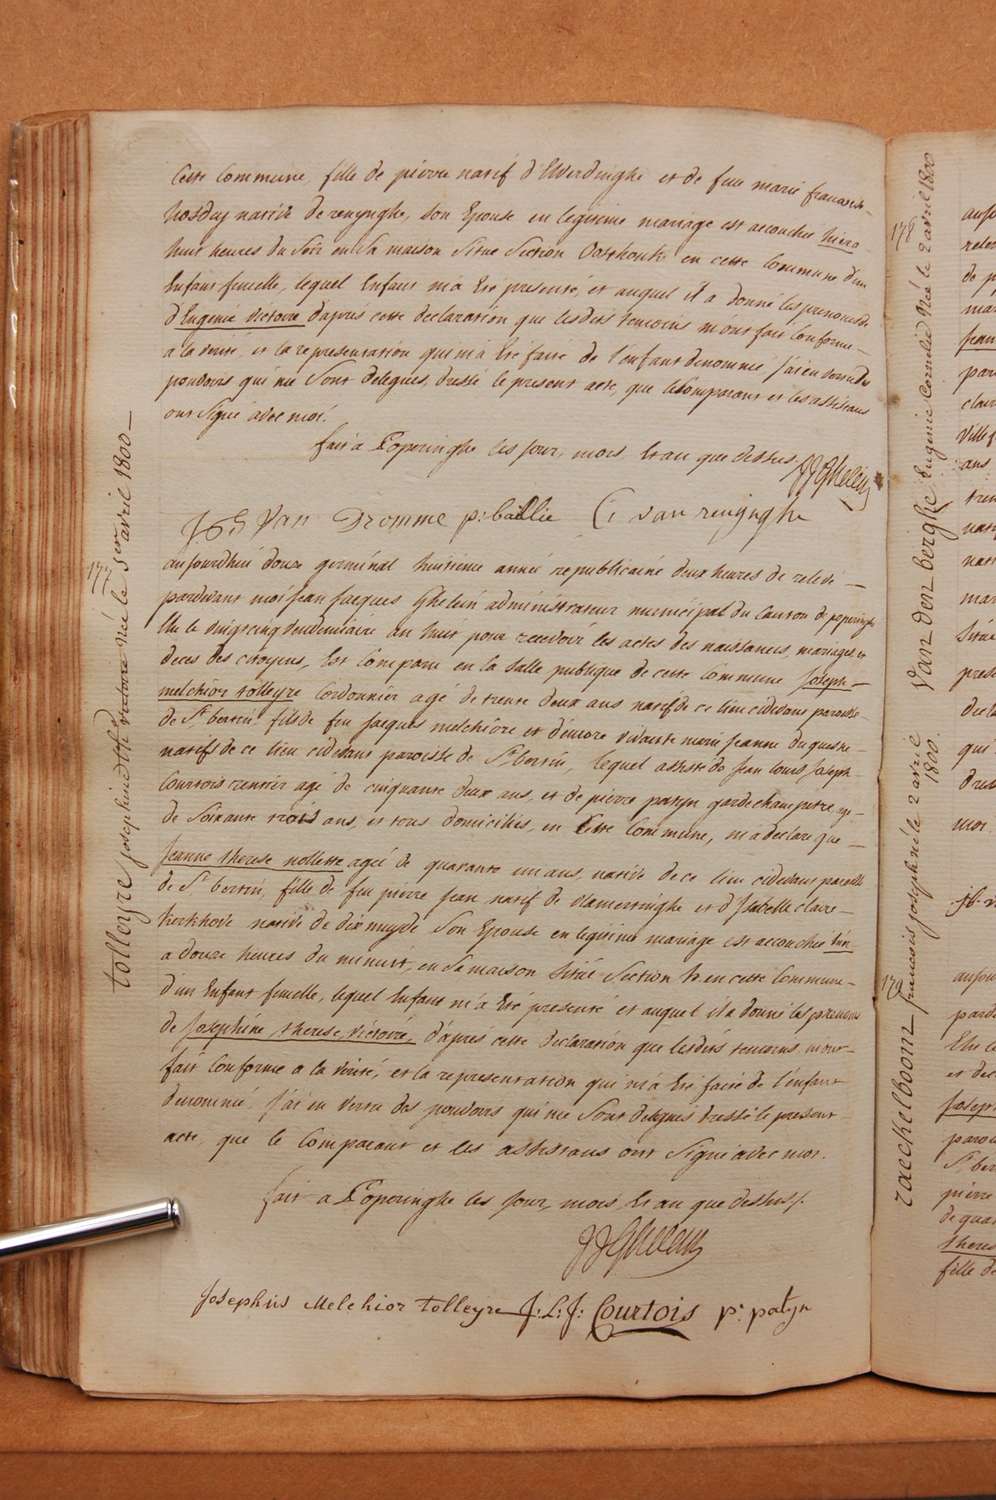 Cette Commune, fille de pierre natif d'Elverdinghe et de feue marie francoise
hosdey native de renynghe, son Epouse en legitime mariage est accouchée hiera
huit heures du Soir en Sa maison Situe Section Oosthouk en cette Commune d'un
Enfant femelle, lequel Enfant m'a Eté presenté, et auquel il a donné les prenoms de
d'Eugenie Victoire d'après cette declaration que lesdits temoins m'ont fait Conforme
a la verité, et la representation qui m'a Eté faite de l'enfant denommé J'ai en vertu des
pouvoirs qui me Sont delegués, dressé le present acte, que le Comparant et les assistans
ont Signé avec moi.
fait a Poperinghe les Jour, mois Et an que dessus.
JJGhelein
Van Dromme p: baillie C: van renynghe
177
tolleyre josephine th. victoire née le 1er avril 1800
aujourdhui douze germinal huitieme année republicaine deux heures de relevé
pardevant moi Jean Jacques Ghelein administrateur municipal du Canton de poperinghe
Elu le vingt cinq vendemiaire an huit pour recevoir les actes des naissances, mariages et
deces des citoyens, Est Comparu en la Salle publique de cette Commune Joseph
melchior tolleyre Cordonnier agé de trente deux ans natif de ce lieu cidevant paroisse
de St bertin fils de feu Jacques melchiore et d'encore vivante marie Jeanne duquesne
natifs de ce lieu cidevant paroisse de St bertin, lequel assisté de Jean louis Joseph
Courtois rentier agé de cinquante deux ans, et de pierre patyn gardechampetre agé
de Soixante trois ans, et tous domiciliés, en Cette Commune, m'a declaré que
Jeanne therese nollette ageé de quarante un ans, native de ce lieu cidevant paroisse
de St bertin, fille de feu pierre Jean natif de vlamertinghe et d'Isabelle claire
kerkhove native de dixmuyde Son Epouse en legitime mariage est accouchée hier
a douze heures du minuit, en Sa maison Situé Section h en cette Commune
d'un Enfant femelle, lequel Enfant m'a Eté presenté et auquel il a donné les prenoms
de Josephine, therese, victoire, d'après cette declaration que lesdits temoins m'ont
fait Conforme a la verité, et la representation qui m'a Eté faite de l'enfant
denommé J'ai en vertu des pouvoirs qui me Sont delegués dressé le present
acte, que le Comparant et les assistans ont Signé avec moi.
fait a Poperinghe les Jour, mois, Et an que dessus.
JJGhelein
Josephus Melchior tolleyre J: L: J: Courtois p: patyn
178
Van den berghe Eugenie Cornelie Née le 2 avril 1800
179
raeckelboom francois joseph né le 2 avril
1800.